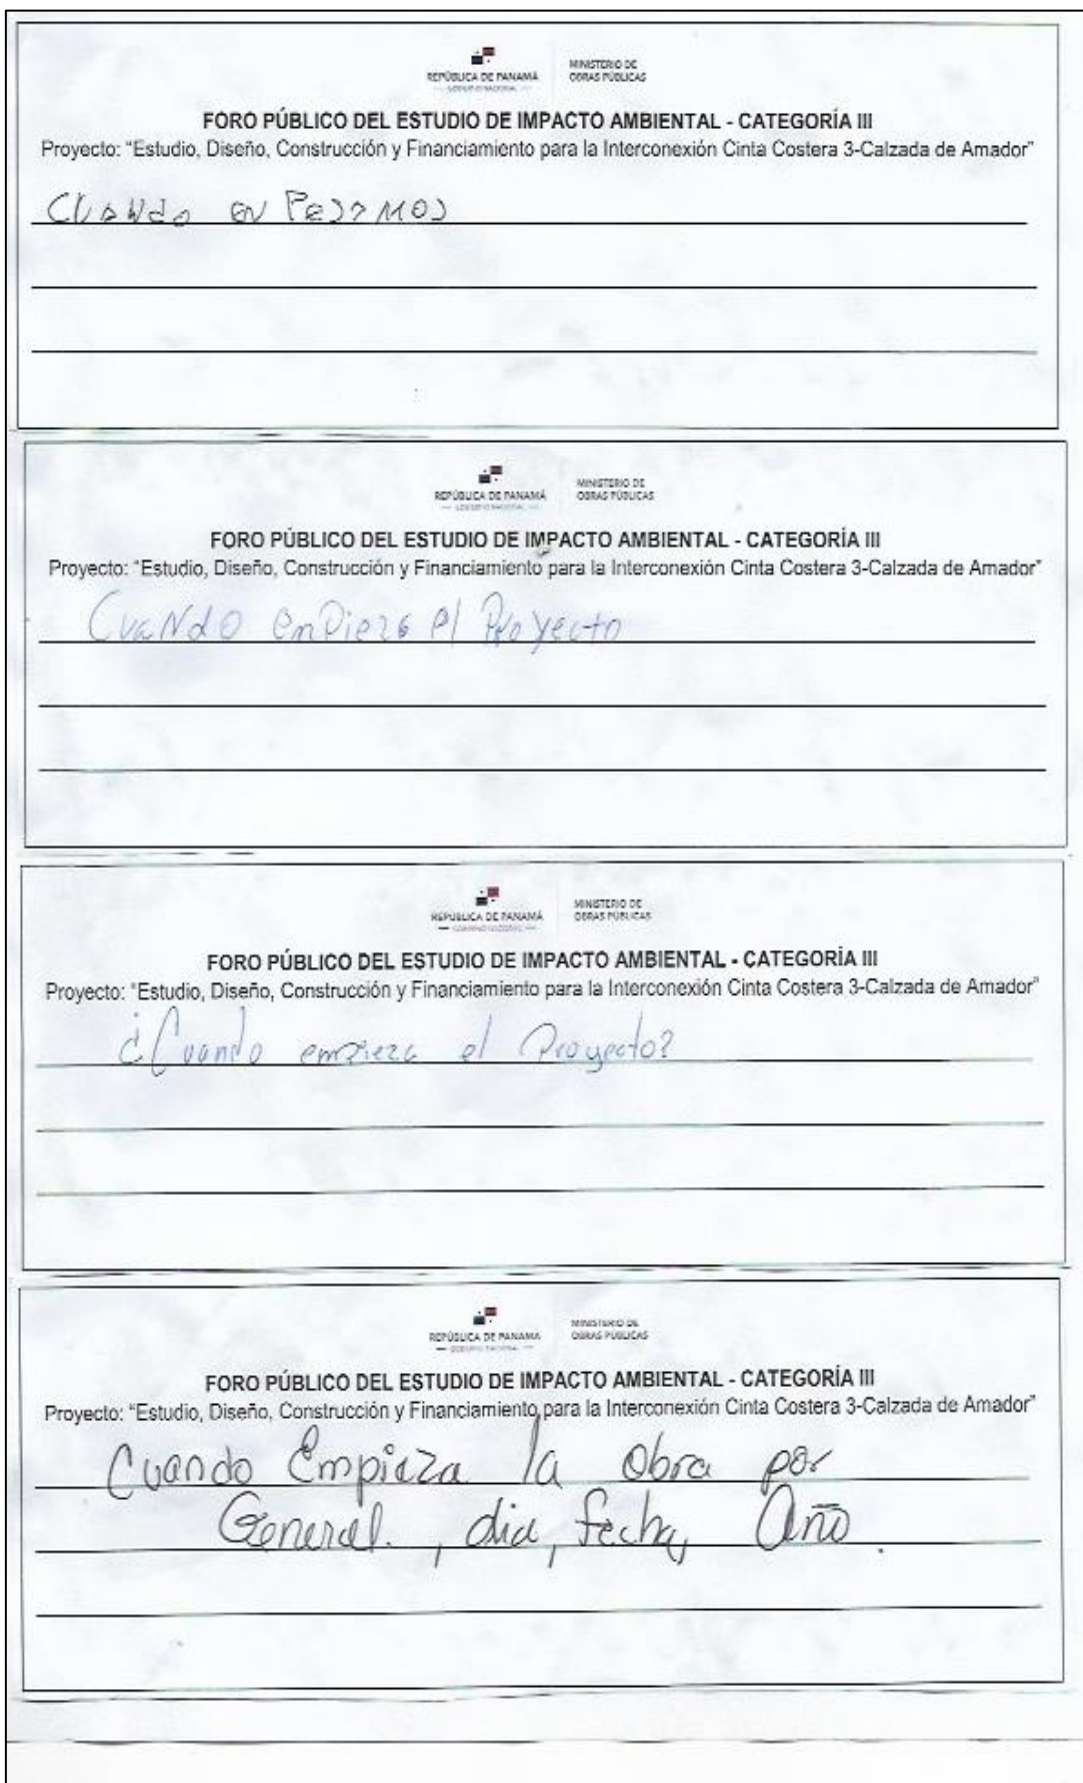 REPÚBLICA DE PANAMÁ
GOBIERNO NACIONAL
MINISTERIO DE
OBRAS PÚBLICAS
FORO PÚBLICO DEL ESTUDIO DE IMPACTO AMBIENTAL - CATEGORÍA III
Proyecto: “Estudio, Diseño, Construcción y Financiamiento para la Interconexión Cinta Costera 3-Calzada de Amador”
Cuando
REPÚBLICA DE PANAMÁ
GOBIERNO NACIONAL
MINISTERIO DE
OBRAS PÚBLICAS
FORO PÚBLICO DEL ESTUDIO DE IMPACTO AMBIENTAL - CATEGORÍA III
Proyecto: “Estudio, Diseño, Construcción y Financiamiento para la Interconexión Cinta Costera 3-Calzada de Amador”
Cuando empieza el Proyecto
REPÚBLICA DE PANAMÁ
GOBIERNO NACIONAL
MINISTERIO DE
OBRAS PÚBLICAS
FORO PÚBLICO DEL ESTUDIO DE IMPACTO AMBIENTAL - CATEGORÍA III
Proyecto: “Estudio, Diseño, Construcción y Financiamiento para la Interconexión Cinta Costera 3-Calzada de Amador”
¿Cuando empieza el Proyecto?
REPÚBLICA DE PANAMÁ
GOBIERNO NACIONAL
MINISTERIO DE
OBRAS PÚBLICAS
FORO PÚBLICO DEL ESTUDIO DE IMPACTO AMBIENTAL - CATEGORÍA III
Proyecto: “Estudio, Diseño, Construcción y Financiamiento para la Interconexión Cinta Costera 3-Calzada de Amador”
Cuando Empieza la Obra por
General. , dia, fecha, Año.